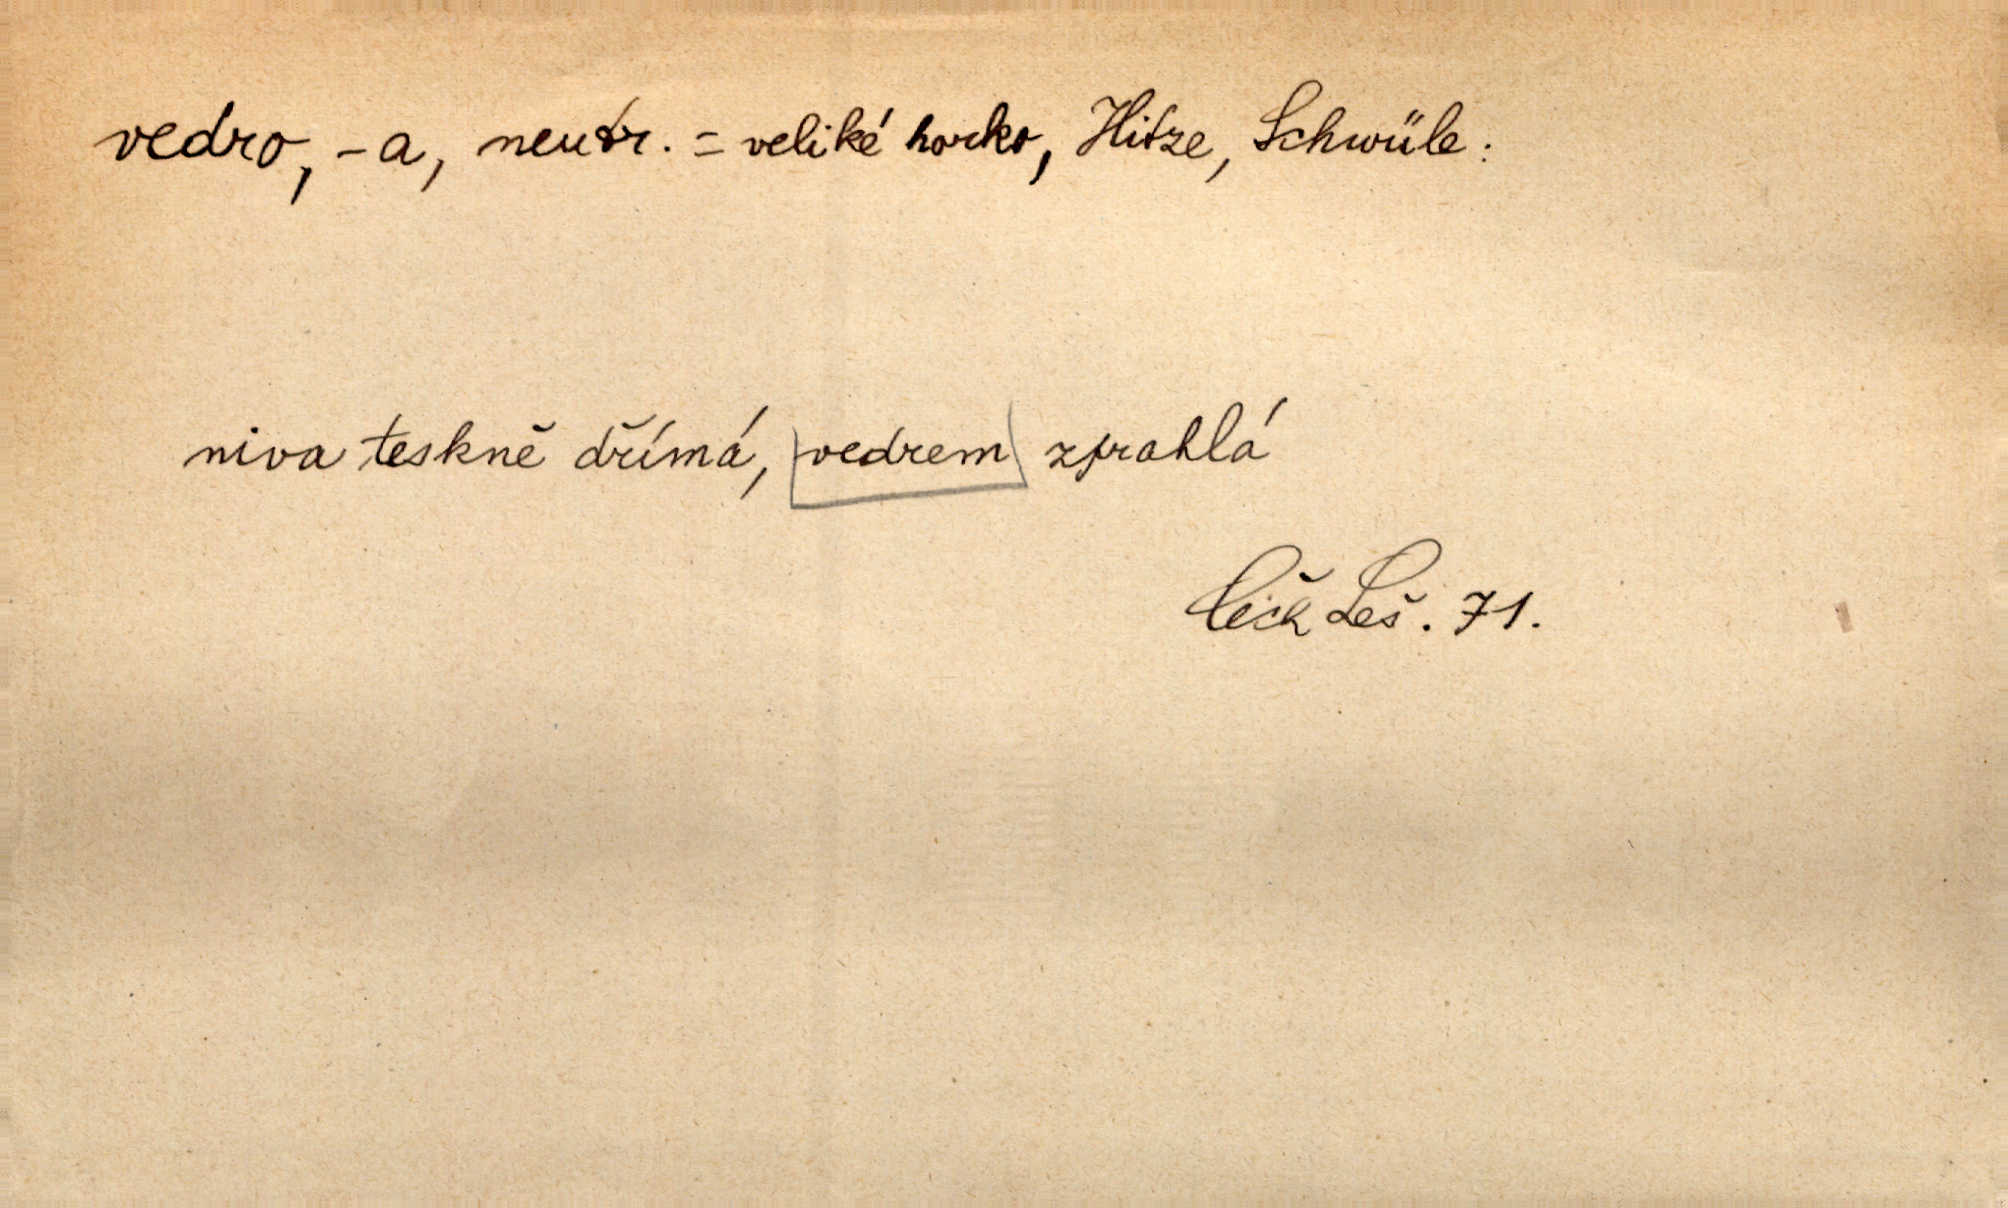 vedro, -a, neutr. = veliké horko, Hitze, Schwüle:
niva teskně dřímá, vedrem zprahlá
Čech Leš. 71.